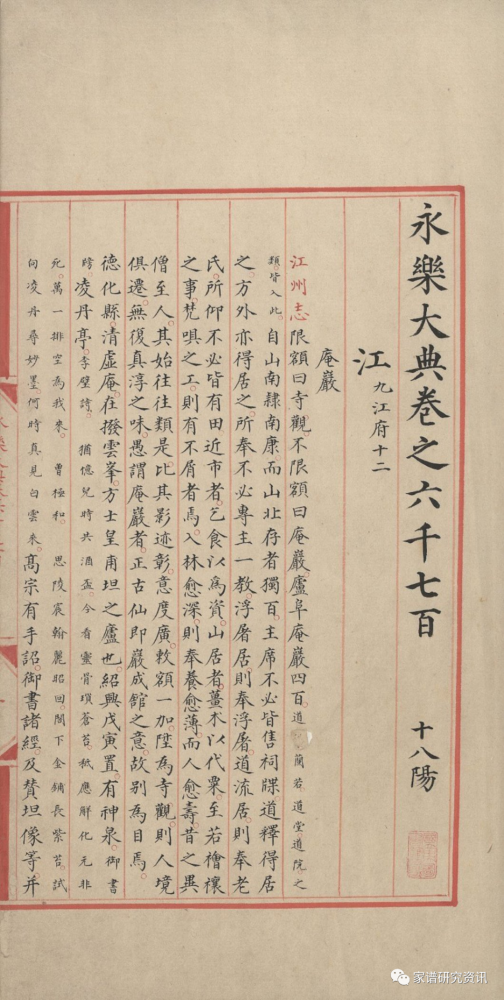 永樂大典卷之六千七百 十八陽
江 九江府十二
庵巖
江州志限額曰寺觀不限額曰庵巖廬阜庵巖四百道 蘭若道堂道院之
類皆入此自山南隸南康而山北存者獨百主席不必皆售祠牒道釋得居
之方外亦得居之所奉不必專主一教浮屠居則奉浮屠道流居則奉老
氏所仰不必皆有田近市者乞食以為資山居者薑朮以代粟至若檜禳
之事梵唄之工則有不屑者焉入林愈深則奉養愈薄而人愈壽昔之異
僧至人其始往往類是比其影迹彰意度廣敕額一加陞為寺觀則人境
俱遷無復真淳之味愚謂庵巖者正古仙即巖成館之意故別為目焉
德化縣清虛庵在撥雲峯方士皇甫坦之廬也紹興戊寅置有神泉御書
跨凌丹亭李壁詩 猶憶兒時共酒盃今看靈骨瑣蒼苔秪應解化元非
死萬一排空為我來 曹極和 思陵宸翰麗昭回閣下金鋪長紫苔試
向凌丹尋妙墨何時真見白雲來高宗有手詔御書諸經及賛坦像等并
家谱研究资讯